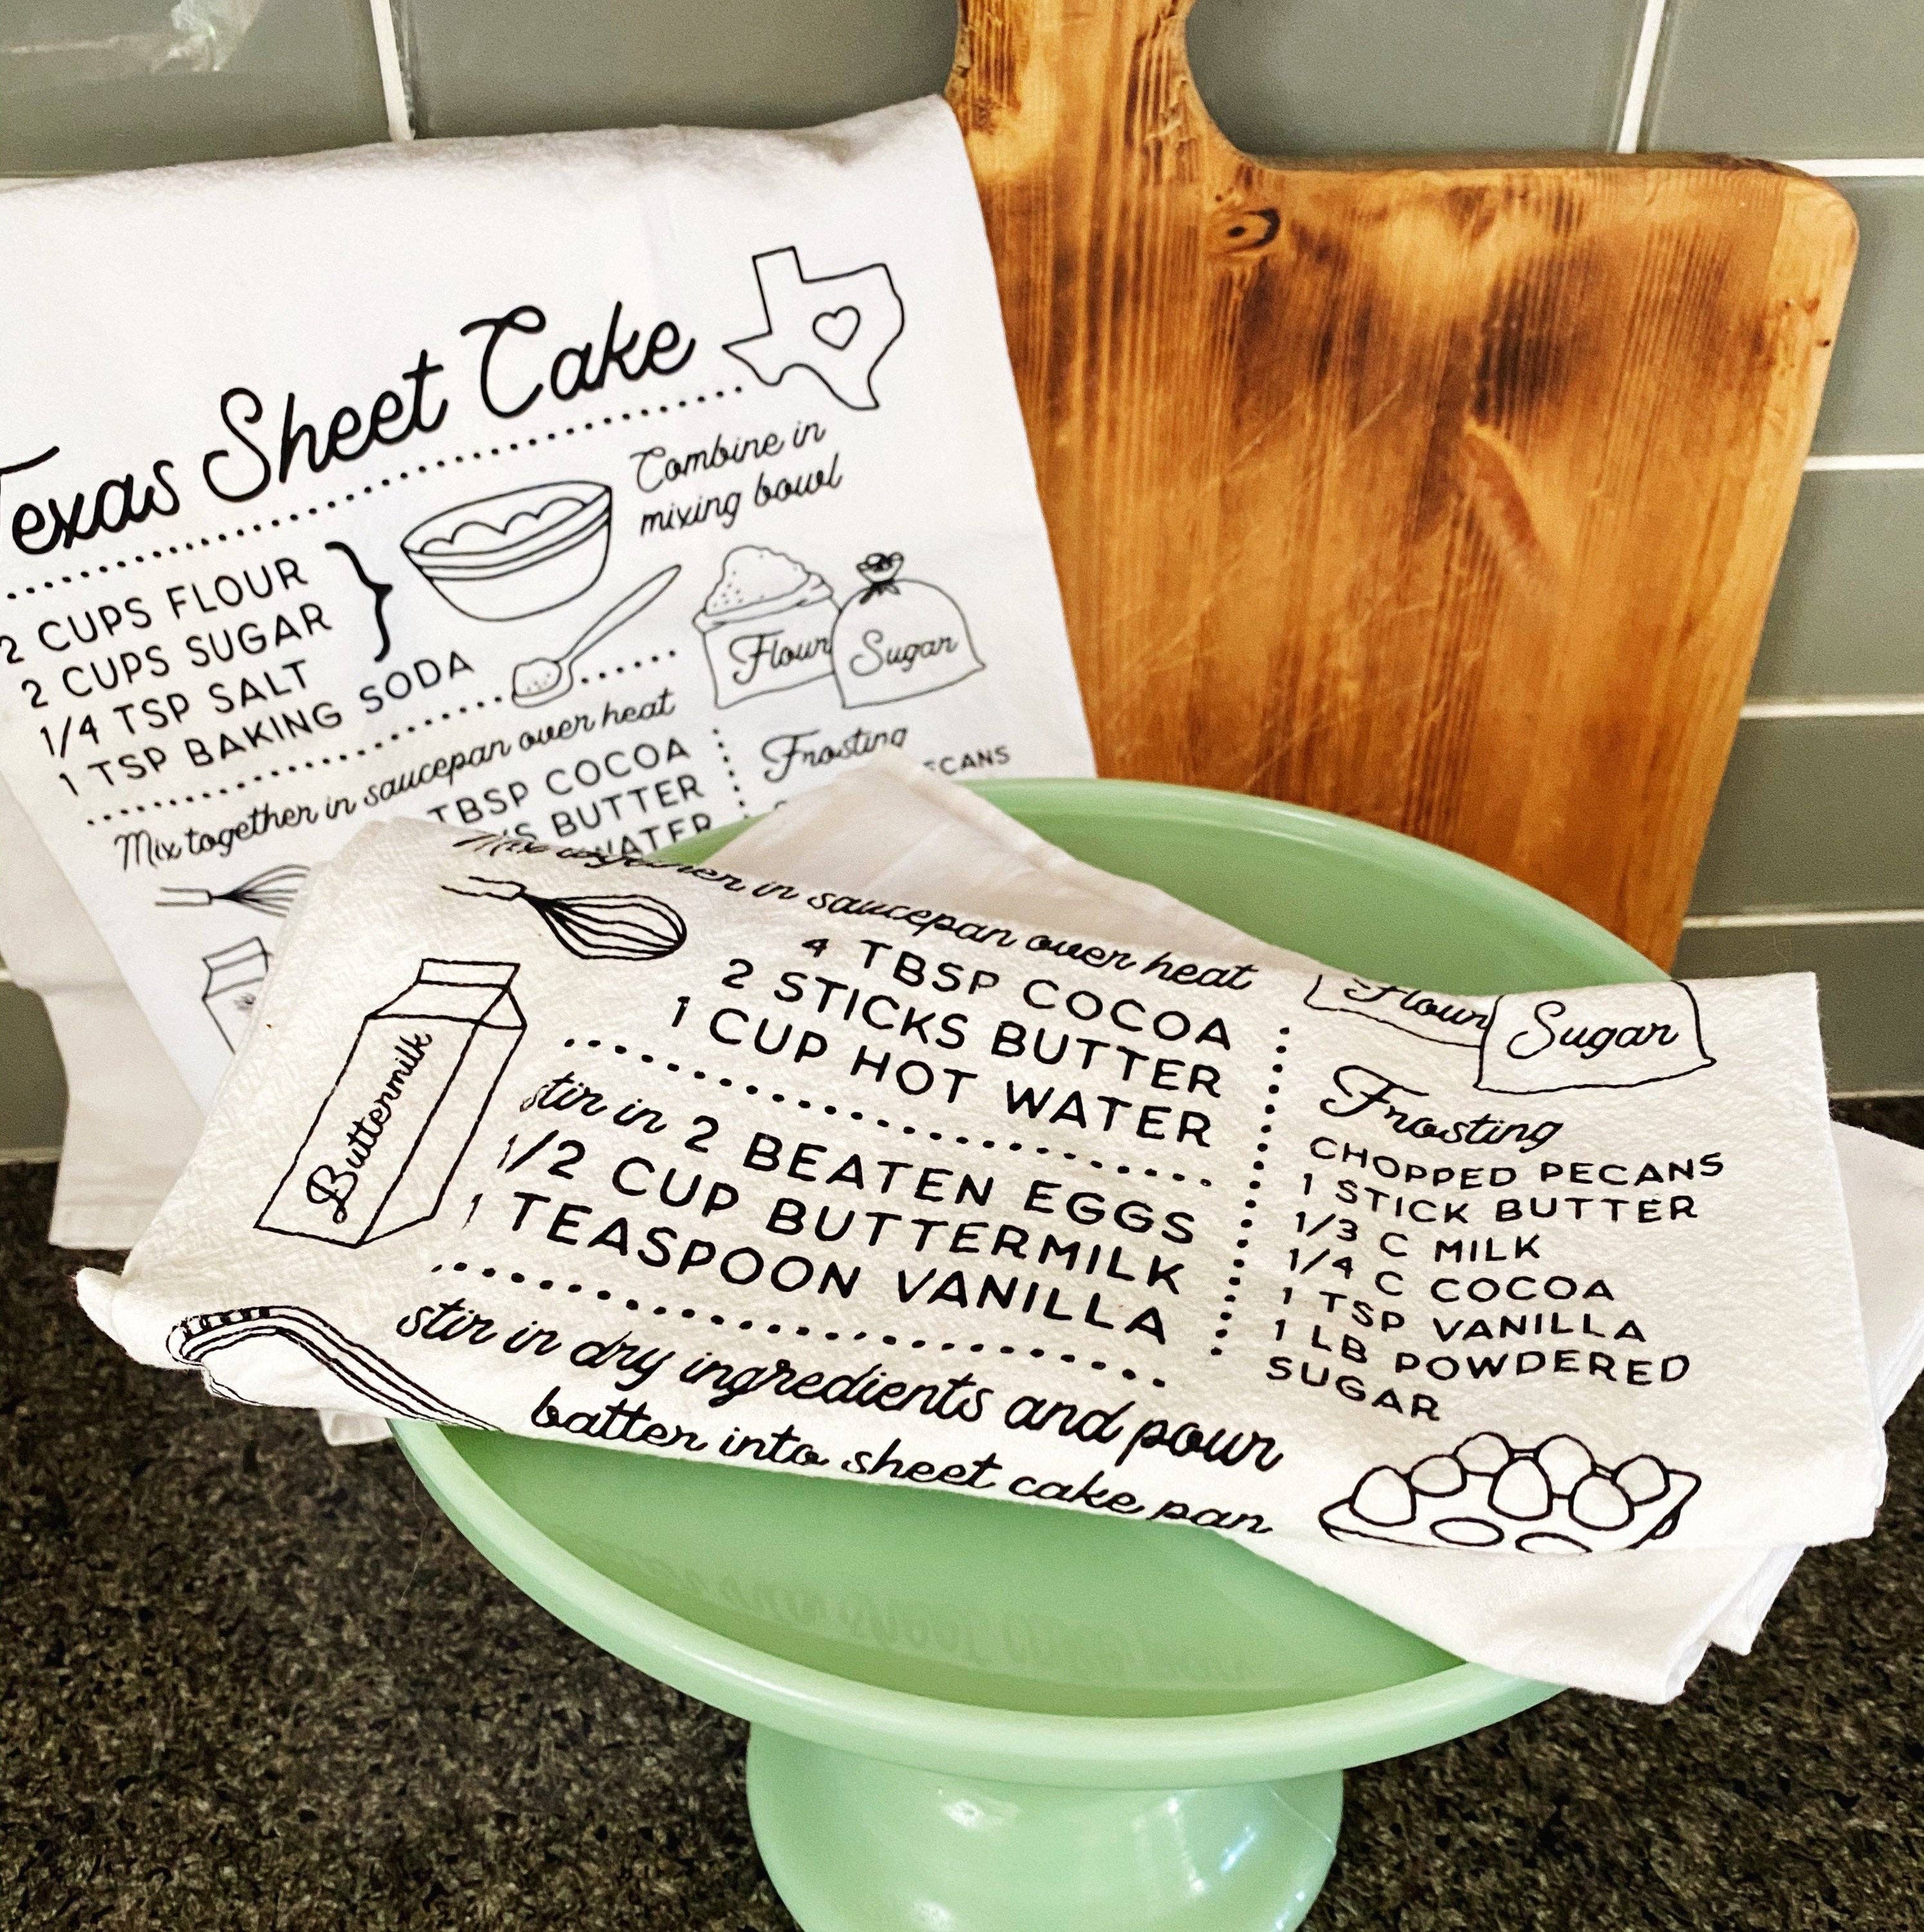 Texas Sheet Cake
Combine in
mixing bowl
2 CUPS FLOUR
2 CUPS SUGAR
1/4 TSP SALT
1 TSP BAKING SODA
Flour
Sugar
Mix together in saucepan over heat
TBSP COCOA
BUTTER
WATER
Frosting
Mix together in saucepan over heat
4 TBSP COCOA
2 STICKS BUTTER
1 CUP HOT WATER
Buttermilk
stir in 2 BEATEN EGGS
1/2 CUP BUTTERMILK
1 TEASPOON VANILLA
stir in dry ingredients and pour
batter into sheet cake pan
Flour
Sugar
Frosting
CHOPPED PECANS
1 STICK BUTTER
1/3 C MILK
1/4 C COCOA
1 TSP VANILLA
1 LB POWDERED
SUGAR